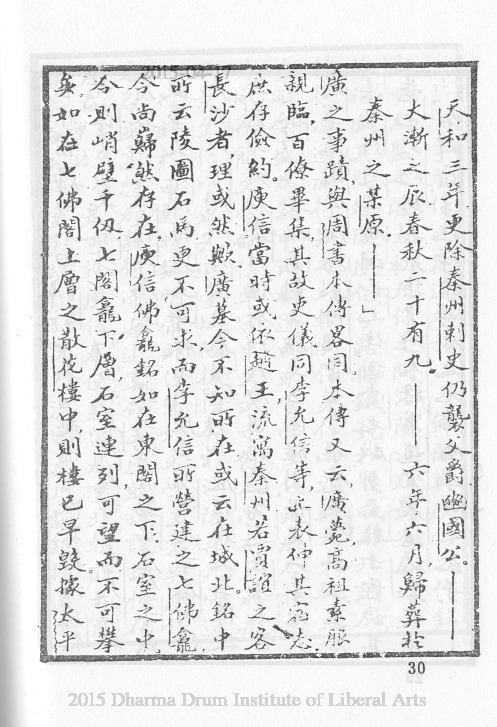 天和三年更除秦州刺史仍襲父爵豳國公。——
大漸之辰春秋二十有九。——六年六月歸葬於
秦州之某原。——」
廣之事蹟與周書本傳畧同本傳又云廣薨高祖素服
親臨，百僚畢集，其故吏儀同李允信等上表伸其宿志，
庶存儉約。庾信當時或依趙王，流寓秦州若賈誼之客
長沙者理或然歟廣墓今不知所在或云在城北。銘中
所云陵圖石馬更不可求，而李允信所營建之七佛龕，
今尚巋然存在。庾信佛龕銘如在東閣之下，石室之中，
今則峭壁千仭，七閣龕下層，石室連列可望而不可攀
矣如在七佛閣上層之散花樓中，則樓已早毀據太平
30
2015 Dharma Drum Institute of Liberal Arts